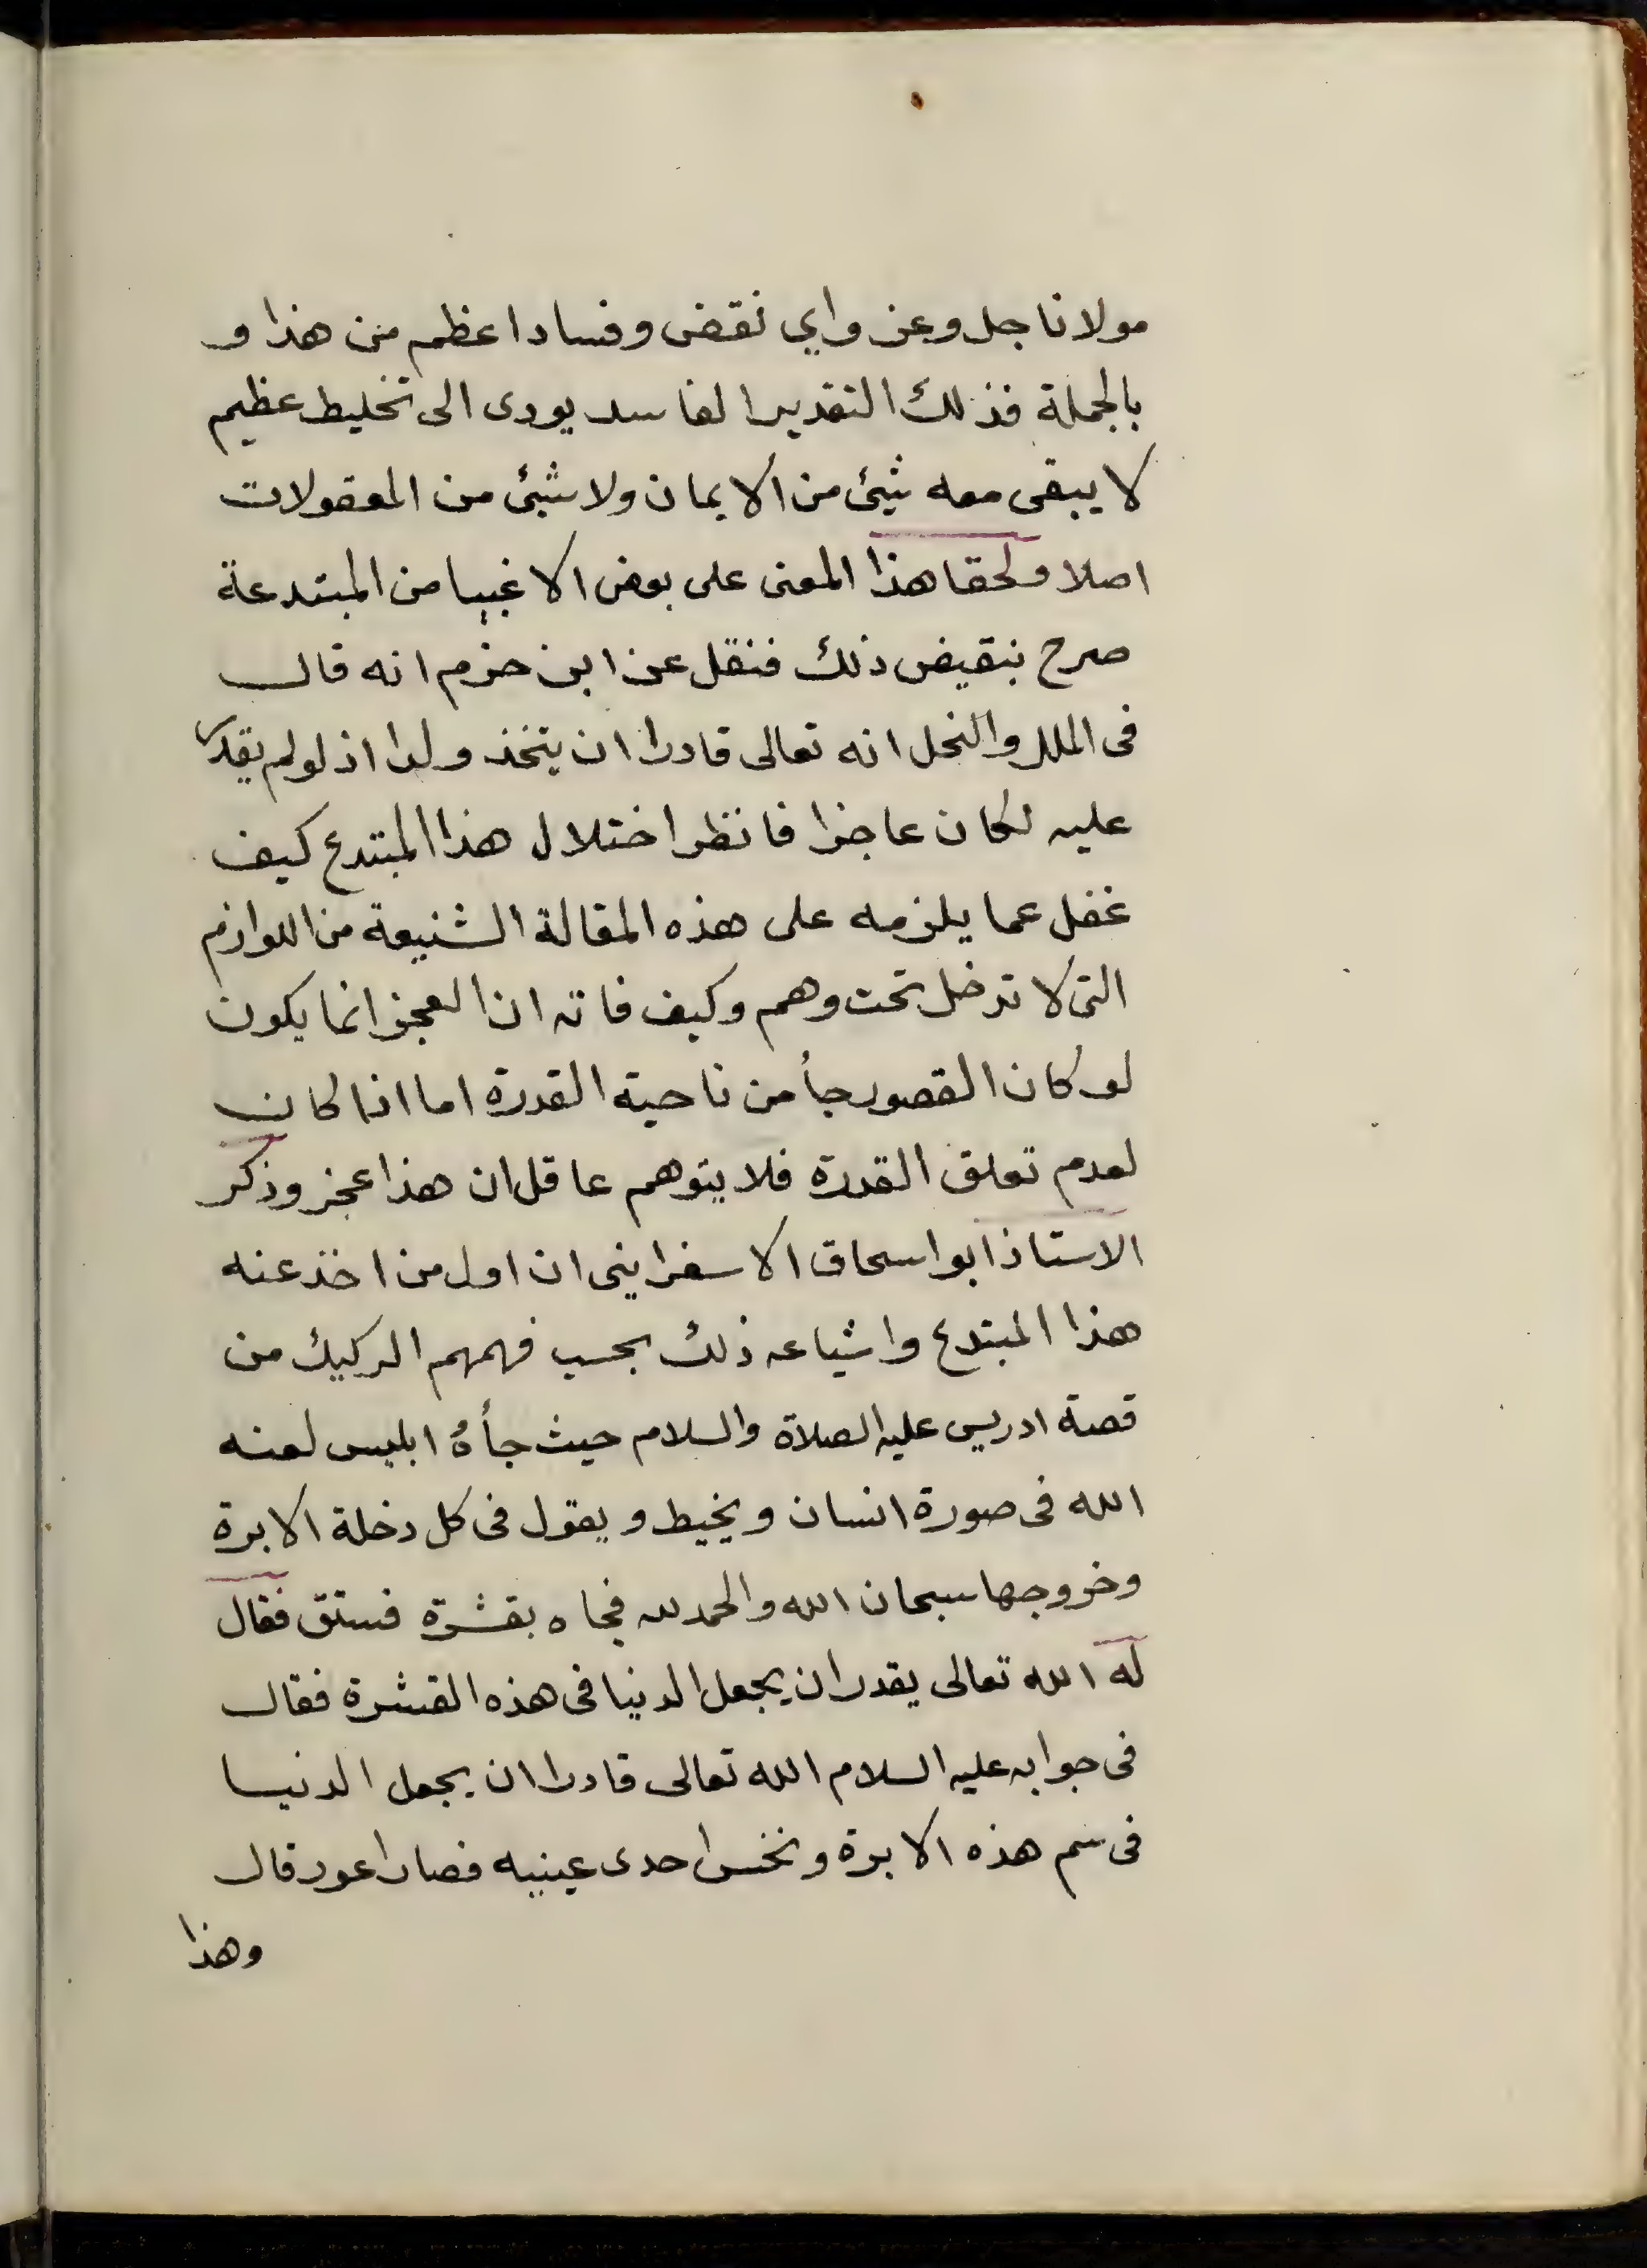 مولانا جل وعز واي نقض وفسادا عظم من هذا و
بالجملة فذلك التقديرا لفاسد يودى الى تخليط عظيم
لا يبقى معه شيئ من الايمان ولا شيئ من المعقولات
اصلا ولحقا هذا المعنى على بعض الاغبيا من المبتدعة
صرح بنقيض ذلك فنقل عن ابن حزم انه قال
فى الملل والنحل انه تعالى قادرا ان يتخذ ولدا اذ لولم يقدر
عليه لكان عاجزا فانظرا ختلال هذا المبتدع كيف
غفل عما يلزمه على هذه المقالة الشنيعة من اللوازم
التى لا تدخل تحت وهم وكيف فاته ان العجز انما يكون
لو كان القصور جأ من ناحية القدرة اما اذا كان
لعدم تعلق القدرة فلا يتوهم عاقل ان هذا عجز وذكر
الاستاذ ابوا سحاق الاسفراينى ان اول من اخذ عنه
هذا المبتدع واشياعه ذلك بحسب فهمهم الركيك من
قصة ادريس عليه الصلاة والسلام حيث جأهُ ابليس لعنه
الله فى صورة انسان ويخيط ويقول فى كل دخلة الابرة
وخروجها سبحان الله والحمد لله فجاه بقشرة فستق فقال
له الله تعالى يقدر ان يجعل الدنيا فى هذه القشرة فقال
فى جوابه عليه السلام الله تعالى قادرا ان يجعل الدنيا
فى سم هذه الابرة ونخس احدى عينيه فصار اعور قال
وهذا